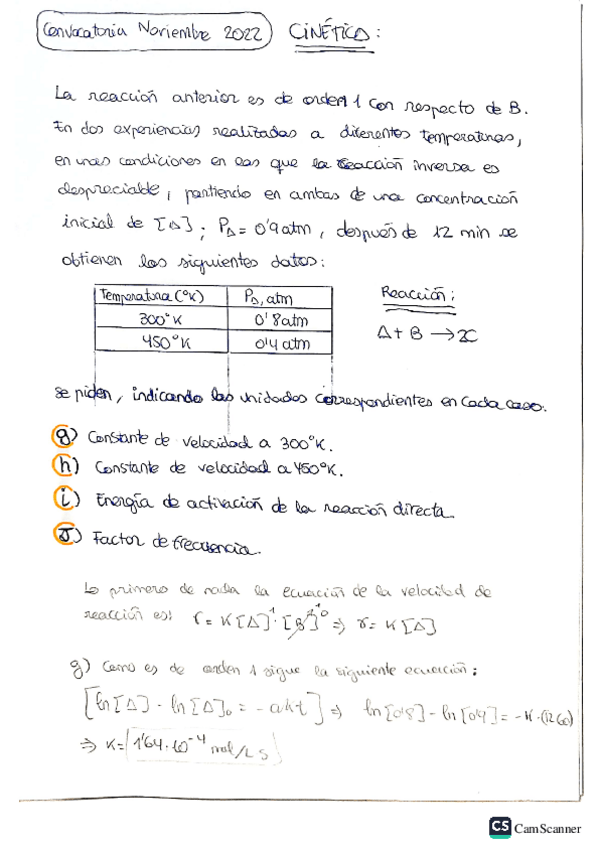 Convocatoria Noviembre 2022 CINÉTICO:
La reacción anterior es de orden 1 con respecto de B.
En dos experiencias realizadas a diferentes temperaturas,
en unas condiciones en las que la reacción inversa es
despreciable, partiendo en ambas de una concentración
inicial de [A]; PA = 0'9 atm, después de 12 min se
obtienen los siguientes datos:
Temperatura (ºK) PA, atm Reacción:
300°K 0'8 atm A + B → 2C
450°K 0'4 atm
se piden, indicando las unidades correspondientes en cada caso.
g) Constante de velocidad a 300°K.
h) Constante de velocidad a 450°K.
i) Energía de activación de la reacción directa.
J) Factor de frecuencia.
Lo primero de nada la ecuación de la velocidad de
reacción es: r = K[A]¹·[B]⁰ ⇒ r = K[A]
g) Como es de orden 1 sigue la siguiente ecuación:
[ln[A] - ln[A]₀ = -akt] ⇒ ln[0'8] - ln[0'9] = -K·(12·60)
⇒ K = 1'64·10⁻⁴ mol/L s
CS CamScanner